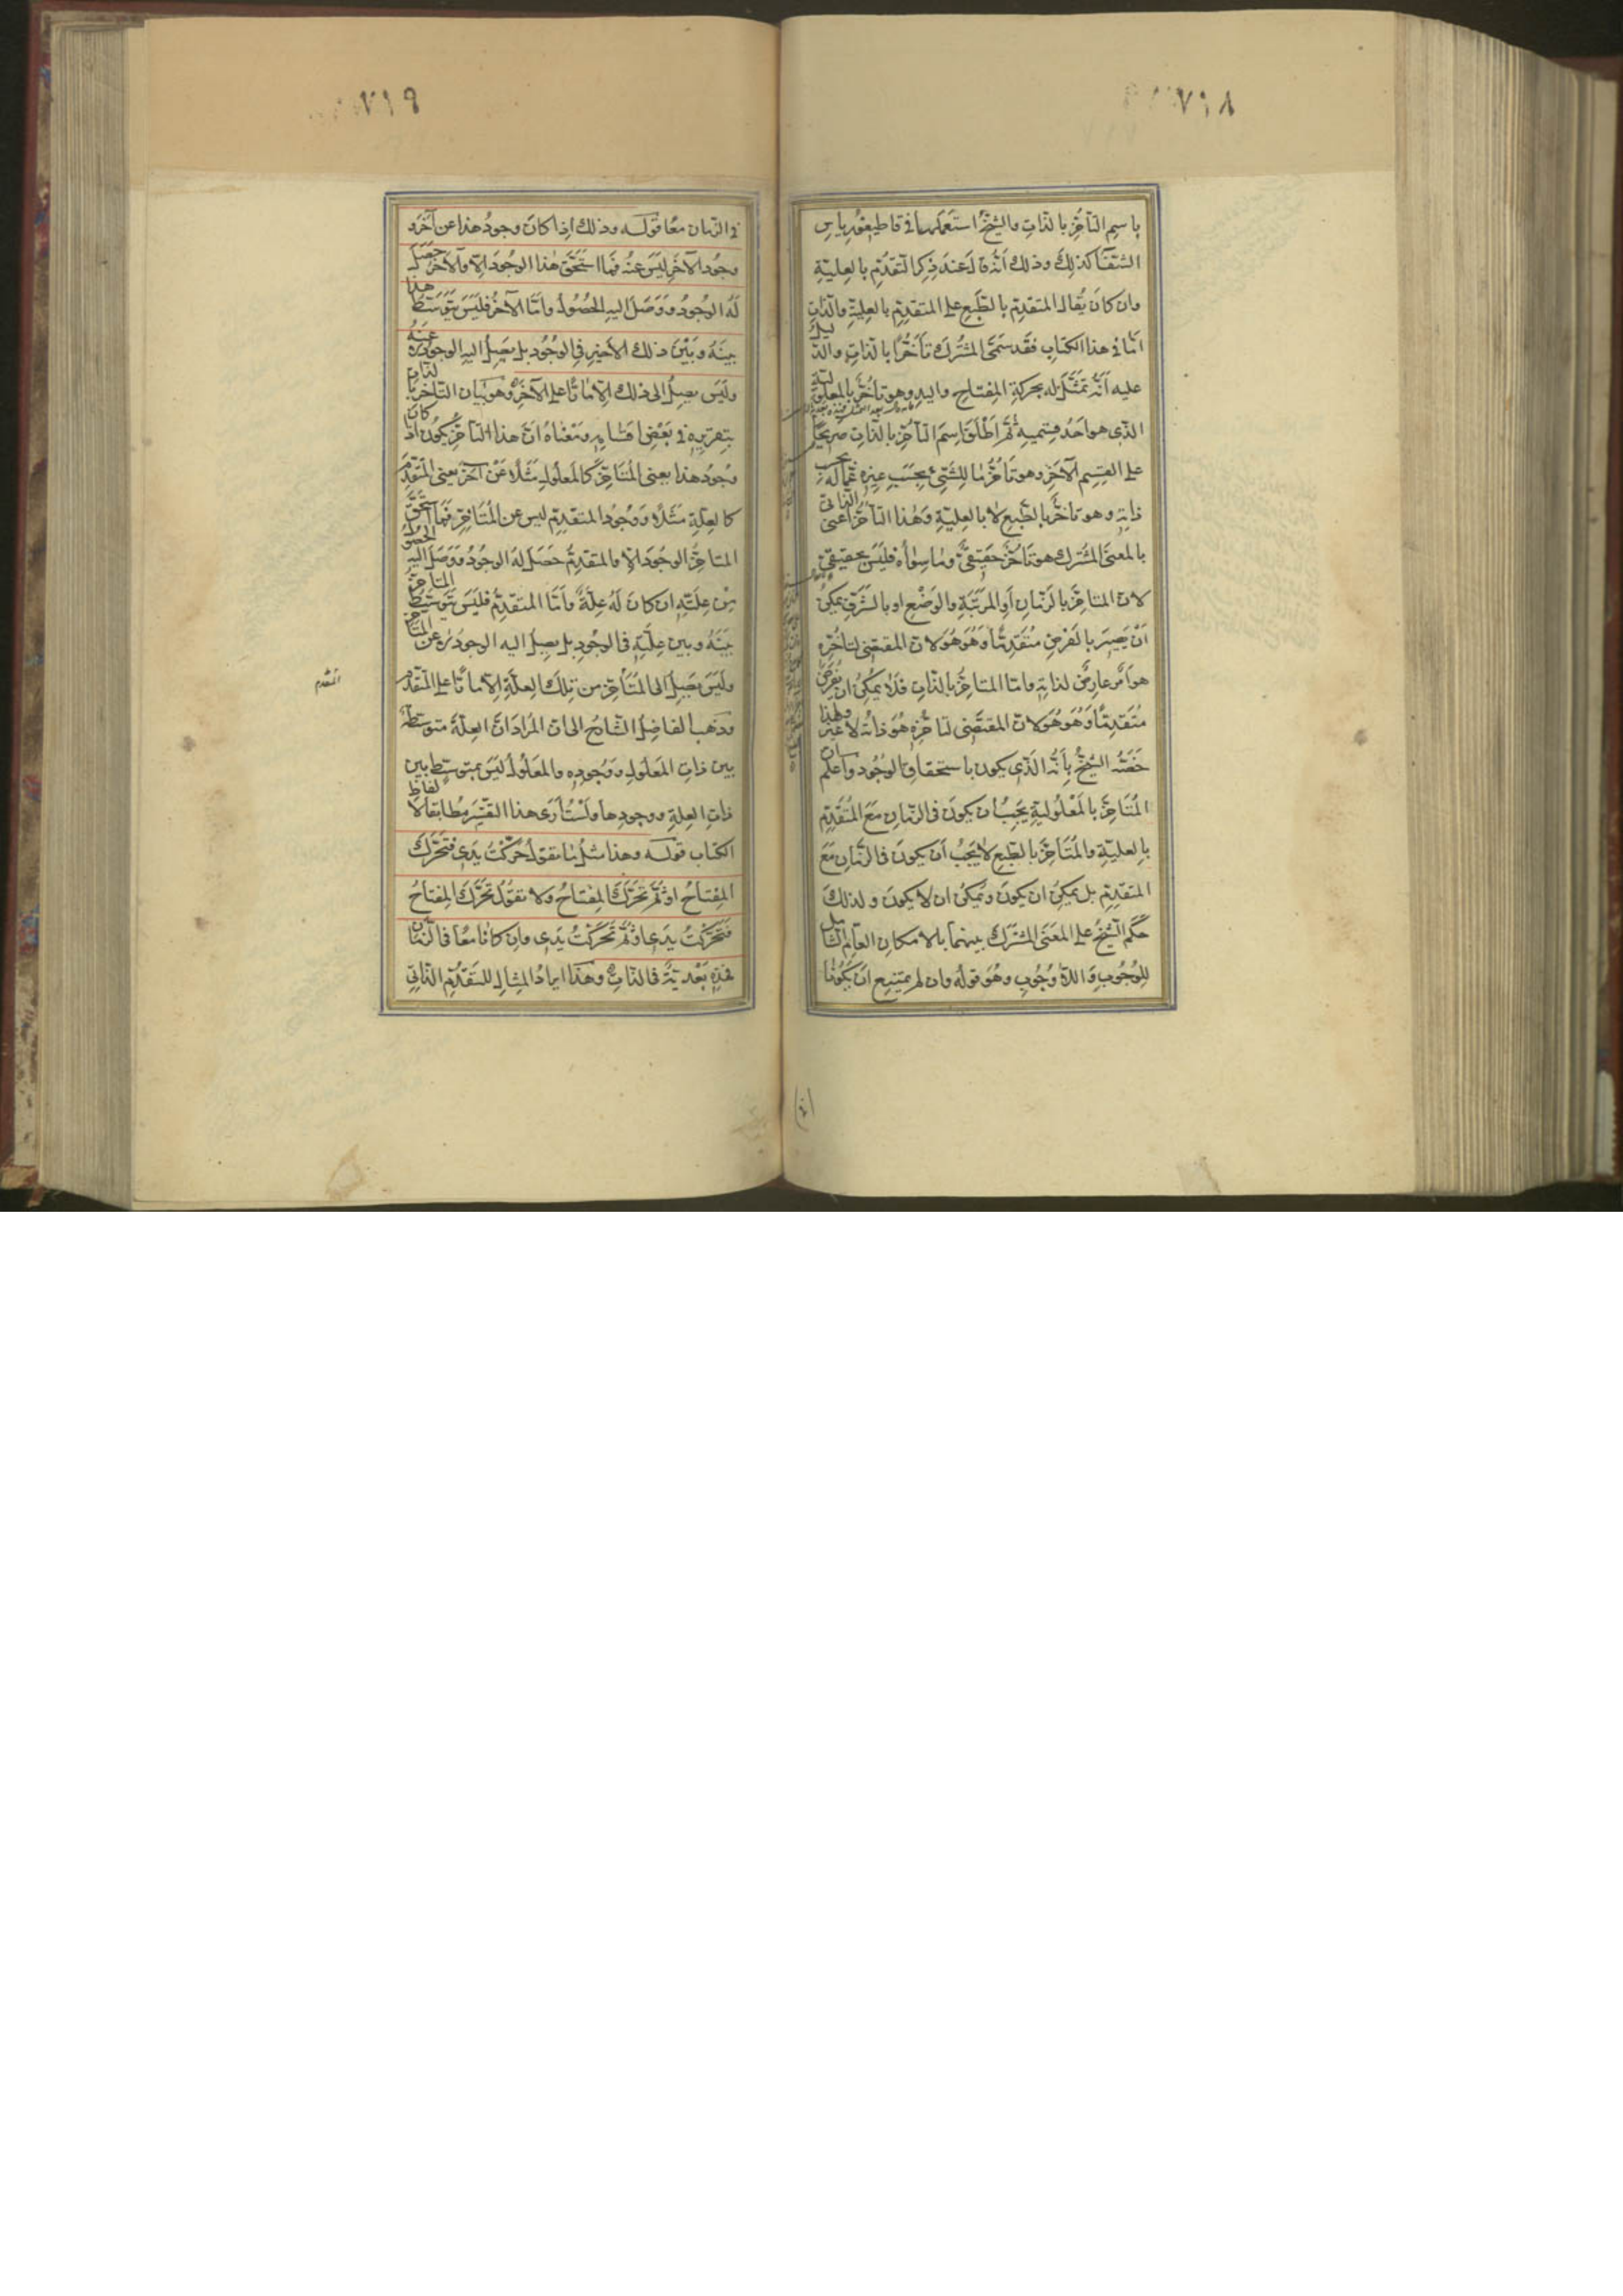 ٧١٨
باسم التأخر بالذات والشيخ استعملهما في قاطيغورياس
الشفا كذلك وذلك أنه قال عند ذكر التقدم بالعلية
وان كان يقال المتقدم بالطبع على المتقدم بالعلية والذات
اما في هذا الكتاب فقد سمى المشترك تأخرا بالذات والدليل
عليه أنه تمثل له بحركة المفتاح واليد وهو تأخر بالمعلولية
الذي هو احد قسميه ثم اطلق اسم التأخر بالذات صريحا
على القسم الآخر وهو تأخر ما للشيء بحسب غيره عما له بحسب
ذاته وهو تاخر بالطبع لا بالعلية وهذا التأخر الذاتي اعني
بالمعنى المشترك هو تأخر حقيقي وما سواه فليس بحقيقي
لان المتاخر بالزمان او المرتبة والوضع او بالشرف يمكن
أن يصير بالفرض متقدما وهو هو لان المقتضي لتأخره
هو امر عارض لذاته واما المتاخر بالذات فلا يمكن ان يفرض
متقدما وهو هو لان المقتضي لتاخره هو ذاته لا غير ولهذا
خصه الشيخ بأنه الذي يكون باستحقاق الوجود واعلم ان
المتاخر بالمعلولية يجب أن يكون في الزمان مع المتقدم
بالعلية والمتاخر بالطبع لا يجب أن يكون في الزمان مع
المتقدم بل يمكن ان يكون ويمكن ان لا يكون ولذلك
حكم الشيخ على المعنى المشترك بينهما بالامكان العام الشامل
للوجوب واللا وجوب وهو قوله وان لم يمتنع ان يكونا
٧١٩
في الزمان معا قوله وذلك اذا كان وجود هذا عن آخر و
وجود الآخر ليس عنه فما استحق هذا الوجود الا والآخر حصل
له الوجود ووصل اليه الحصول واما الآخر فليس يتوسط هذا
بينه وبين ذلك الأخير في الوجود بل يصل اليه الوجود لا عنه
وليس يصل الى ذلك الا مارا على الآخر وهو بيان التاخر بالذات
بتقريره في بعض اقسامه ومعناه ان هذا التأخر يكون اذا كان
وجود هذا يعني المتاخر كالمعلول مثلا عن آخر يعني المتقدم
كالعلة مثلا ووجود المتقدم ليس عن المتاخر فما استحق
المتاخر الوجود الا والمتقدم حصل له الوجود ووصل اليه الحصول
من علته ان كان له علة وأما المتقدم فليس يتوسط المتاخر
بينه وبين علته في الوجود بل يصل اليه الوجود لا عن المتاخر
وليس يصل الى المتأخر من تلك العلة الا مارا على المتقدم
وذهب الفاضل الشارح الى ان المراد ان العلة متوسطة
بين ذات المعلول ووجوده والمعلول ليس بمتوسط بين
ذات العلة ووجودها ولست أرى هذا التفسير مطابقا لالفاظ
الكتاب قوله وهذا مثل ما تقول حركت يدي فتحرك
المفتاح او ثم تحرك المفتاح ولا تقول تحرك المفتاح
فتحركت يدي او ثم تحركت يدي وان كانا معا في الزمان
فهذه بعدية في الذات وهذا ايراد المثال للتقدم الذاتي
المتقدم